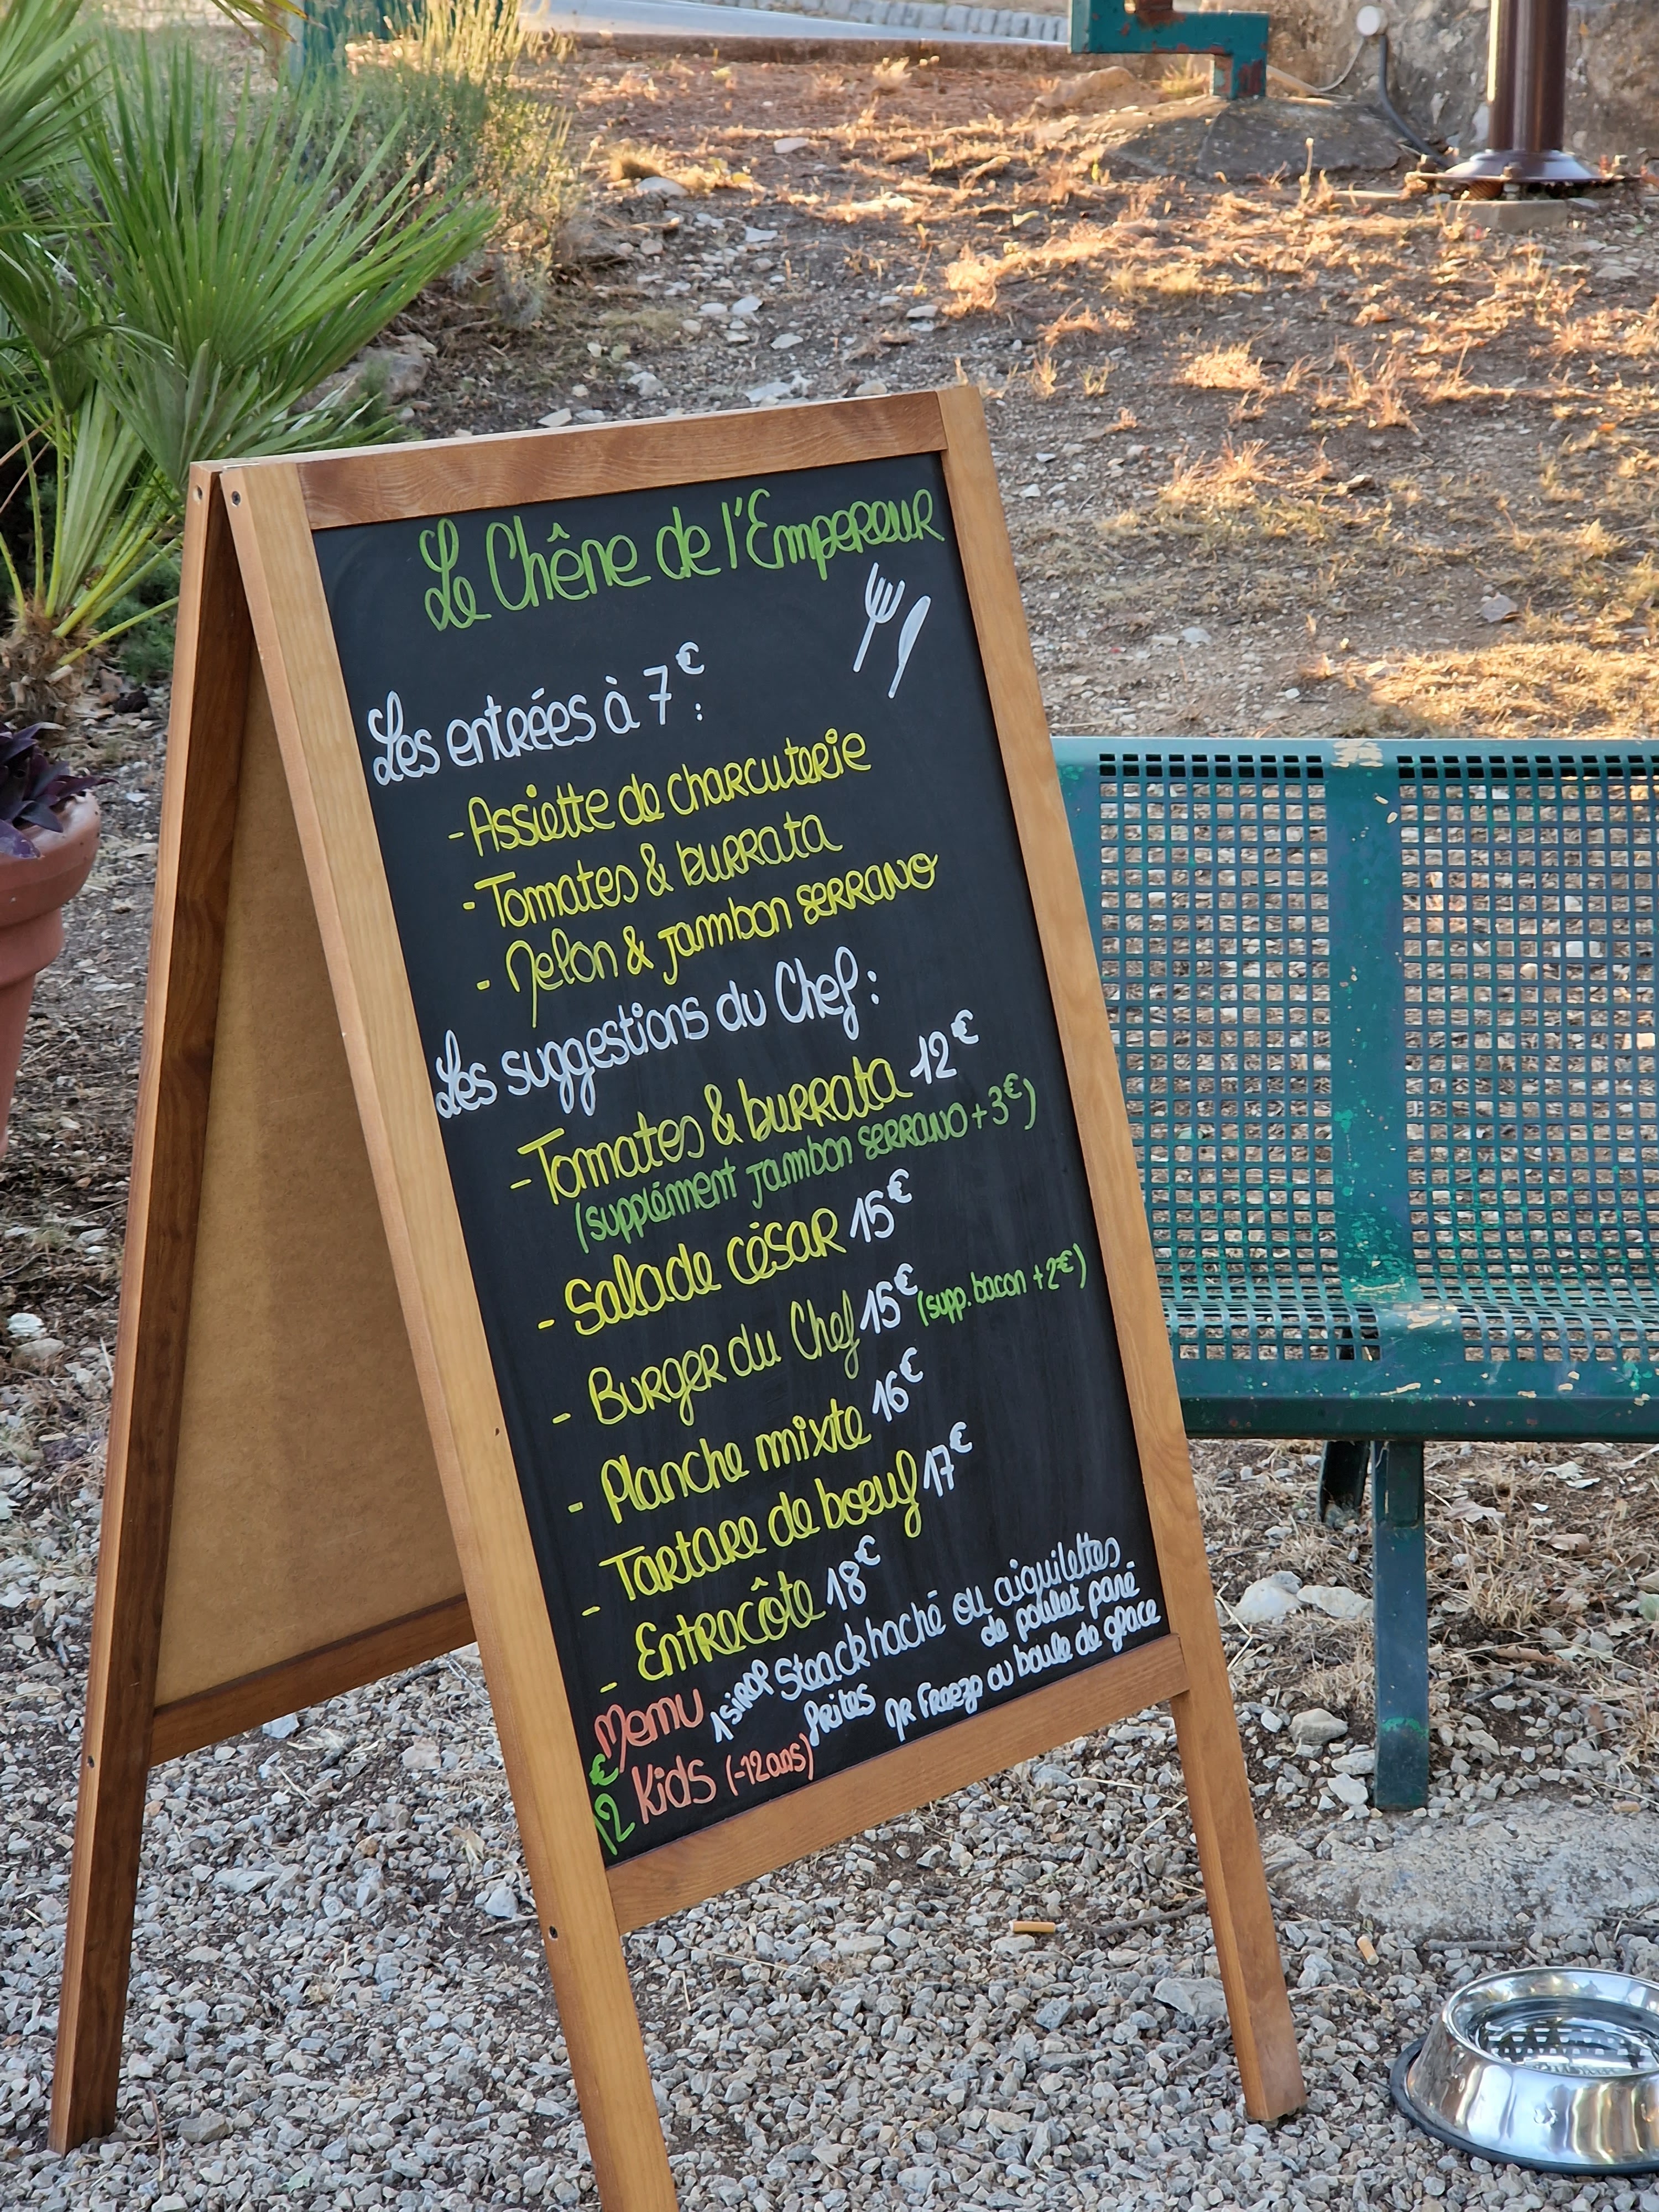 Le Chêne de l'Empereur
Les entrées à 7€ :
- Assiette de charcuterie
- Tomates & burrata
- Melon & jambon serrano
Les suggestions du Chef :
- Tomates & burrata 12€
(supplément jambon serrano + 3€)
- Salade césar 15€
- Burger du Chef 15€ (supp. bacon + 2€)
- Planche mixte 16€
- Tartare de boeuf 17€
- Entrecôte 18€
Menu Kids (-12ans)
12€
1 sirop
Steack haché ou aiguilettes
de poulet pané
frites
Mr Freeze ou boule de glace